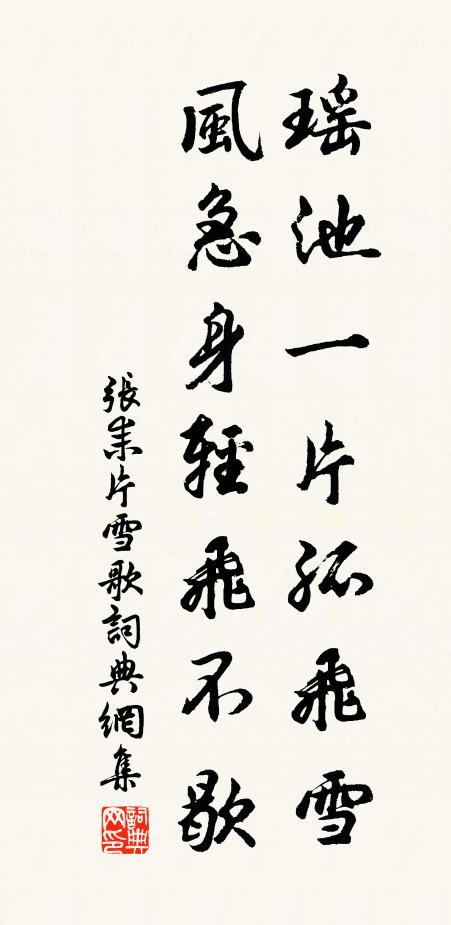 瑶池一片孤飛雪
風急身輕飛不歇
張耒片雪歌詞典網集
詞典網印